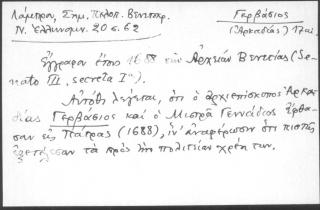 Λάμπρου, Σημ. Πελοπ. Βενετοκρ.
Ν. Ἑλληνομν. 20 σ. 62
Γερβάσιος
(Ἀρκαδίας) 17αι.
Ἔγγραφον ἔτους 1688 τῶν Ἀρχείων Βενετίας (Se-
nato III, secreta Iª).
Αὐτόθι λέγεται, ὅτι ὁ ἀρχιεπίσκοπος Ἀρκα-
δίας Γερβάσιος καὶ ὁ Μιστρᾶ Γεννάδιος ἔφθα-
σαν εἰς Πάτρας (1688), ἵν' ἀναφέρωσιν ὅτι πιστῶς
ἐξετέλεσαν τὰ πρὸς τὴν πολιτείαν χρέη των.